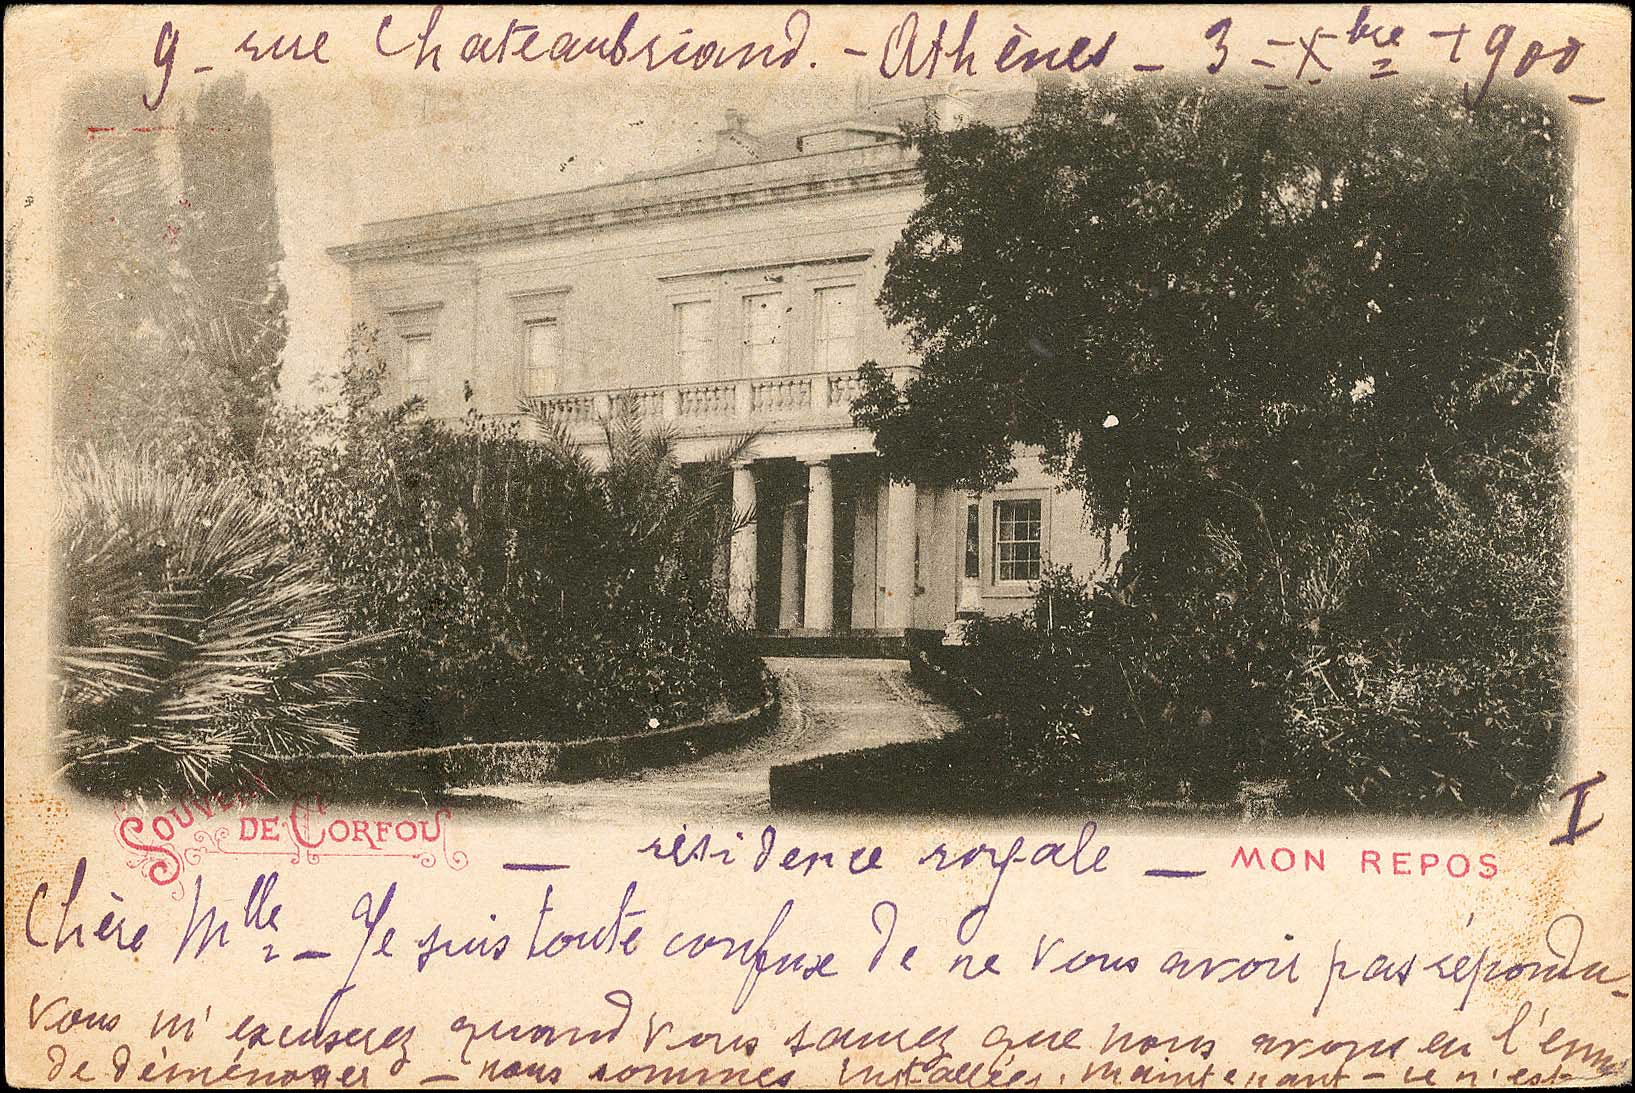 9 - rue Chateaubriand. - Athènes - 3 = Xbre = 1900 -
I
SOUVENIR
DE CORFOU
— résidence royale —
MON REPOS
Chère Mlle - Je suis toute confuse de ne vous avoir pas répondu -
Vous m'excuserez quand vous saurez que nous avons eu l'ennui
de déménager - nous sommes installées, maintenant - ce n'est